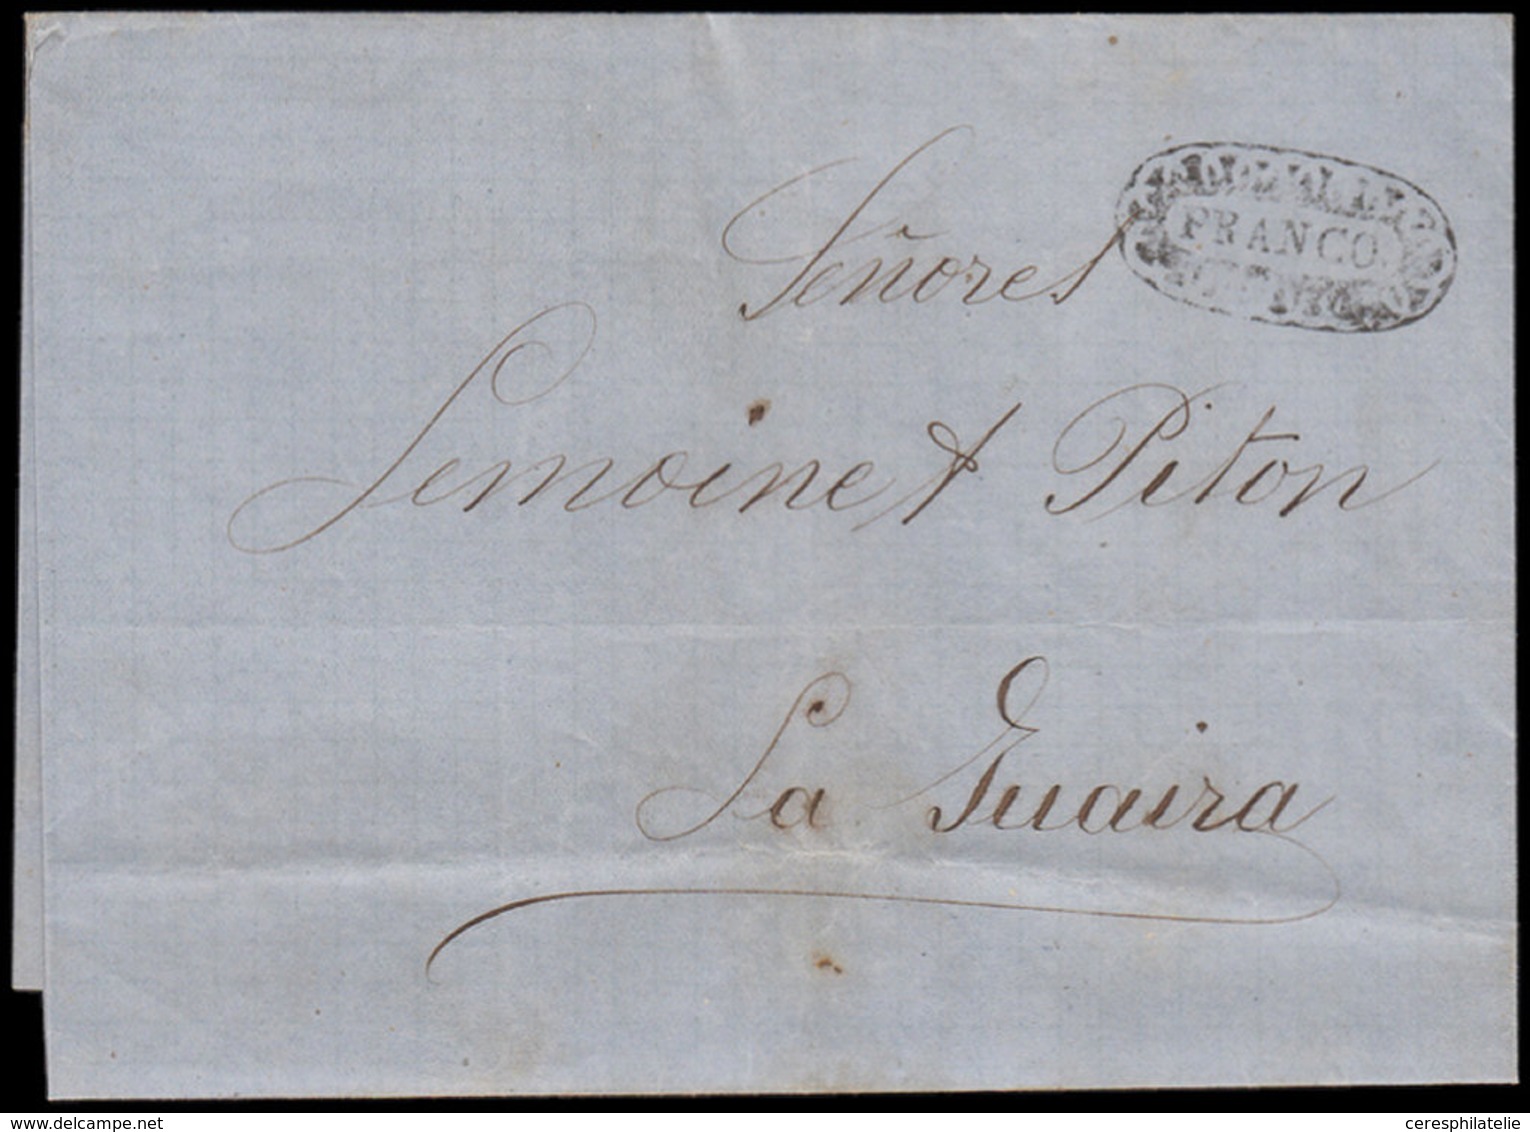 Señores
FRANCO.
Lemoine & Piton
La Guaira
www.delcampe.net
ceresphilatelie